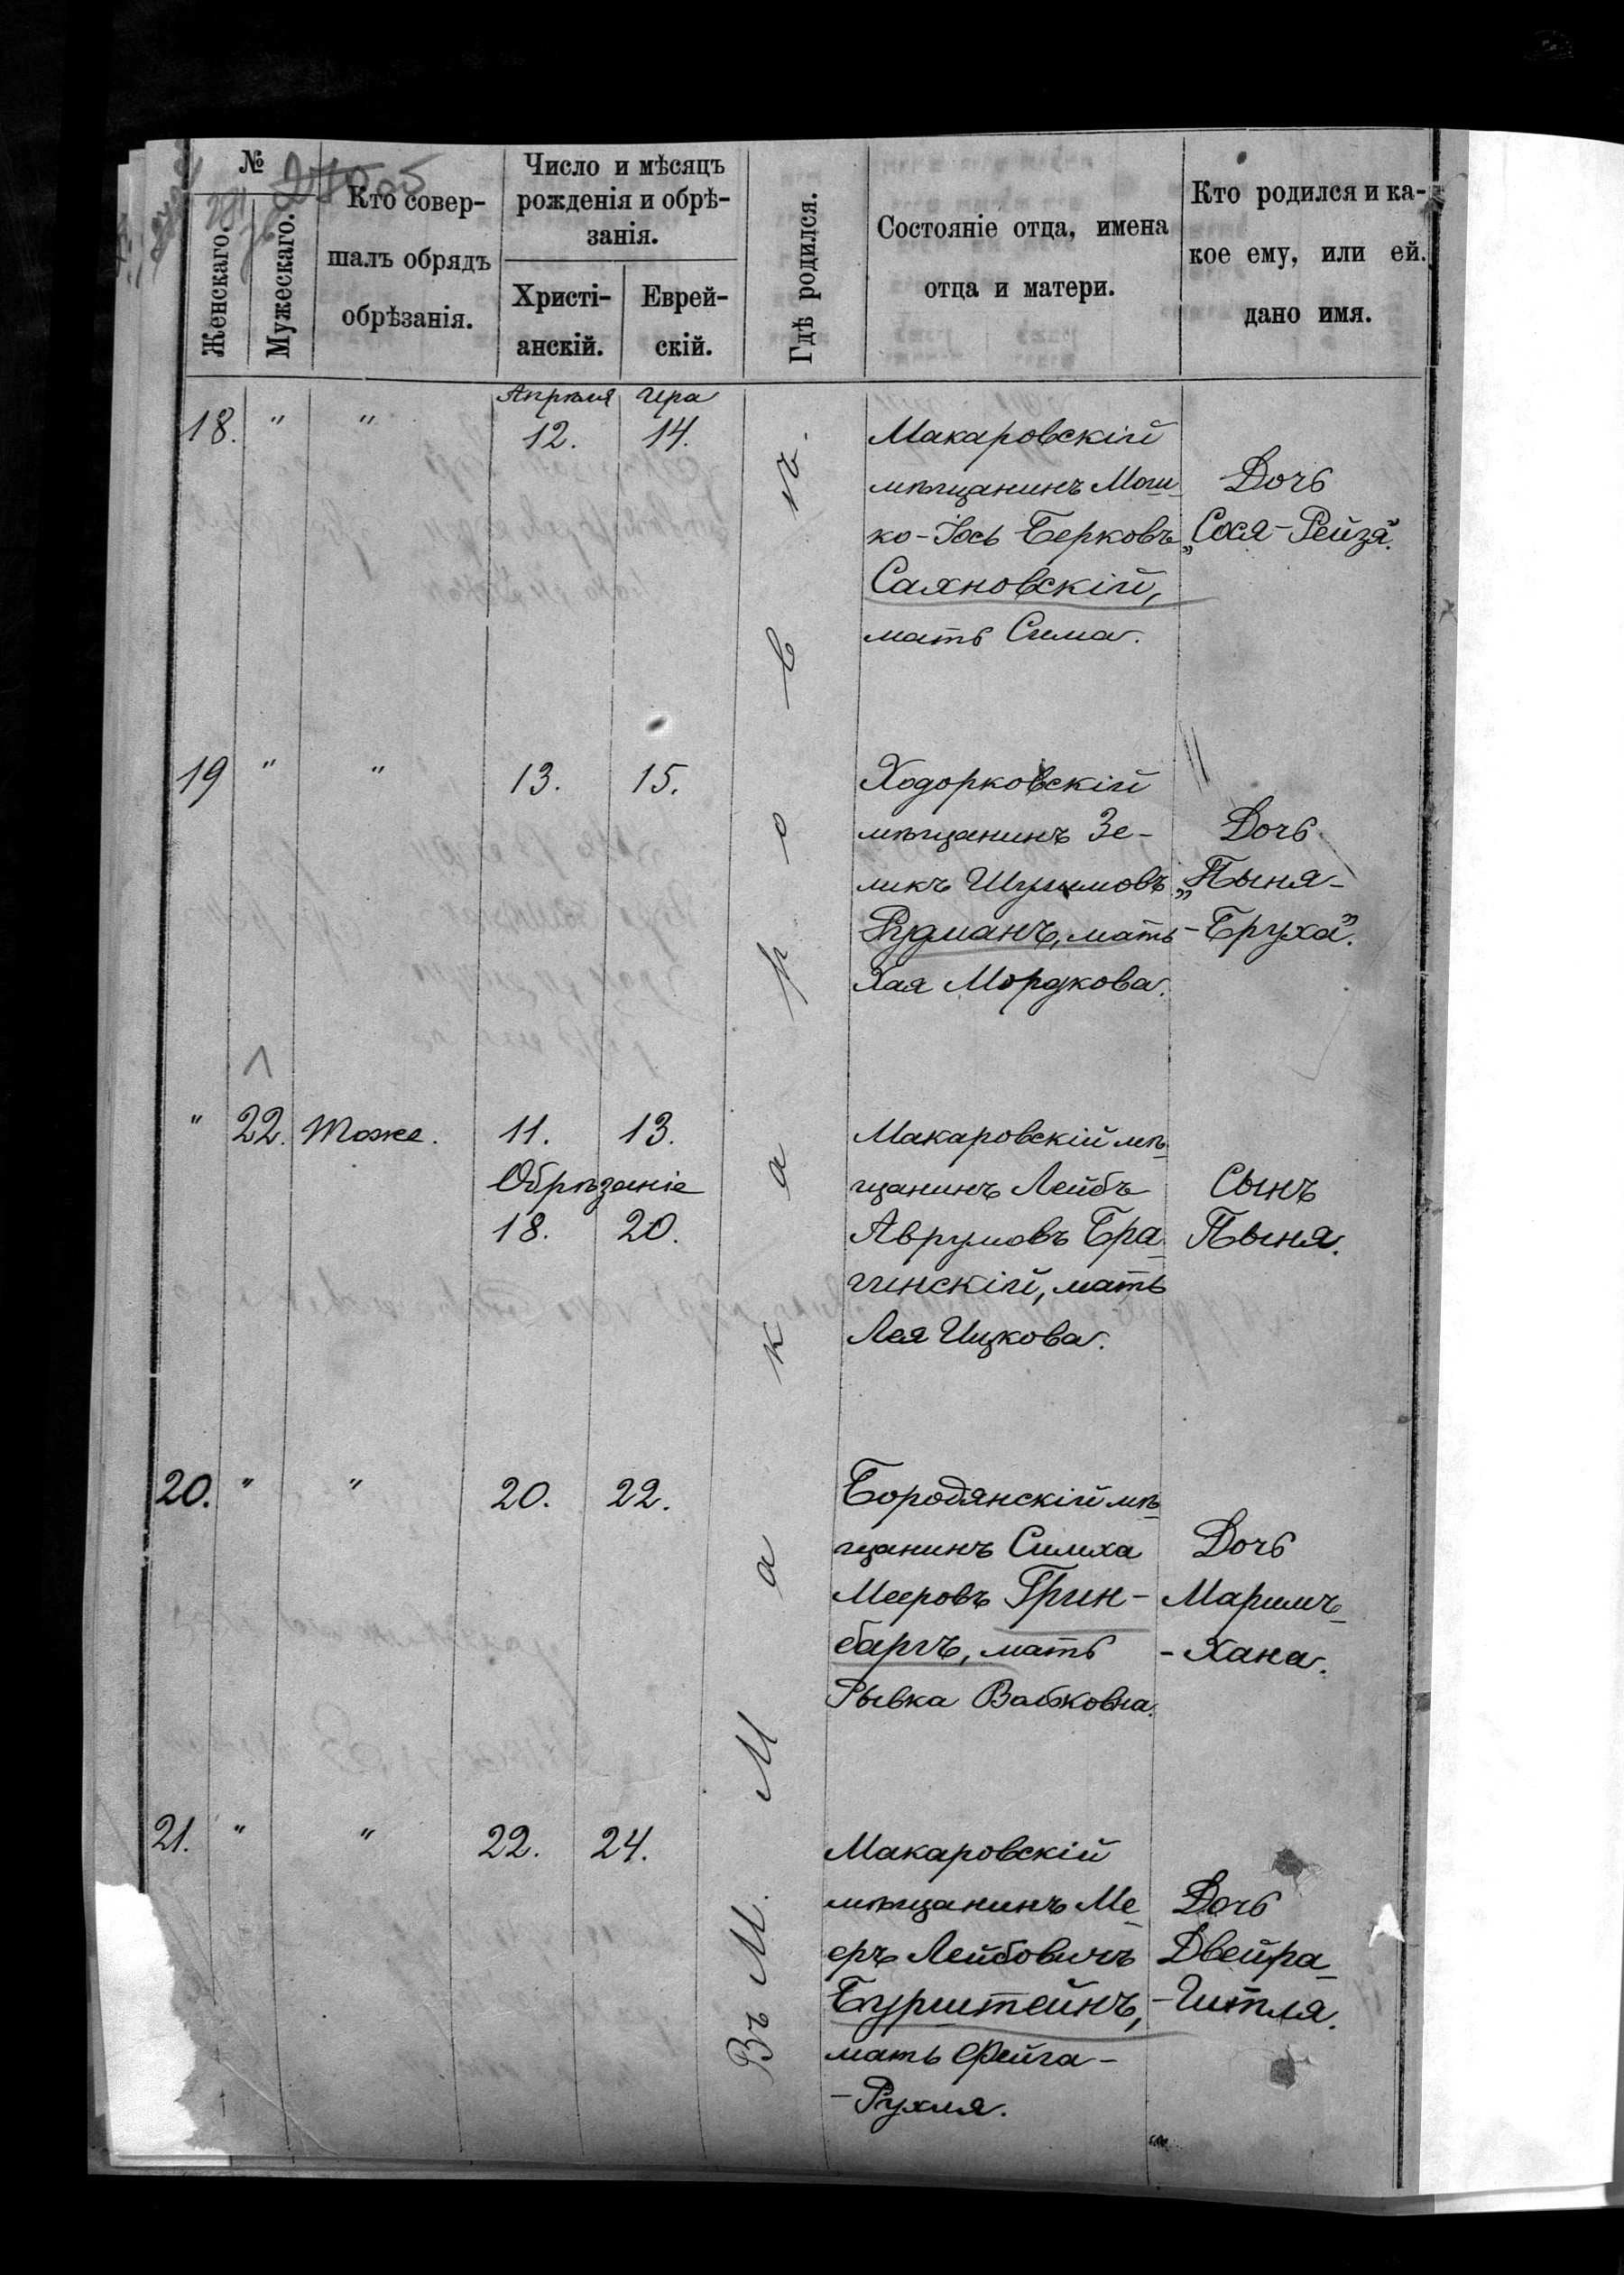 №
Женскаго.
Мужескаго.
Кто совер-
шалъ обрядъ
обрѣзанія.
Число и мѣсяцъ
рожденія и обрѣ-
занія.
Христі-
анскій.
Еврей-
скій.
Гдѣ родился.
Состояніе отца, имена
отца и матери.
Кто родился и ка-
кое ему, или ей.
дано имя.
Въ М. Макаровѣ.
Апрѣля Ира
18. " " 12. 14.
Макаровскій
мѣщанинъ Мош-
ко-Іось Берковъ
Сахновскій,
мать Сима.
Дочь
„Сося-Рейза".
19 " " 13. 15.
Ходорковскій
мѣщанинъ Зе-
ликъ Шулимовъ
Рудманъ, мать
Хая Мордкова.
Дочь
„Пыня-
-Бруха".
" 22. Тоже. 11. 13.
Обрѣзаніе
18. 20.
Макаровскій мѣ-
щанинъ Лейбъ
Аврумовъ Бра-
гинскій, мать
Лея Ицкова.
Сынъ
Пыня.
20. " " 20. 22.
Бородянскій мѣ-
щанинъ Симха
Мееровъ Грин-
баргъ, мать
Рывка Волковна.
Дочь
Маримъ-
-Хана.
21. " " 22. 24.
Макаровскій
мѣщанинъ Ме-
еръ Лейбовичъ
Бурштейнъ,
мать Фейга-
-Рухля.
Дочь
Двейра-
-Гитля.